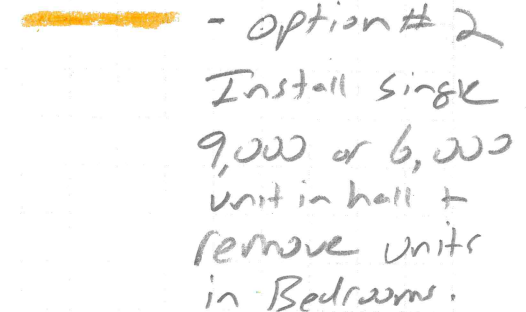 - Option # 2
Install single
9,000 or 6,000
unit in hall +
remove units
in Bedrooms.